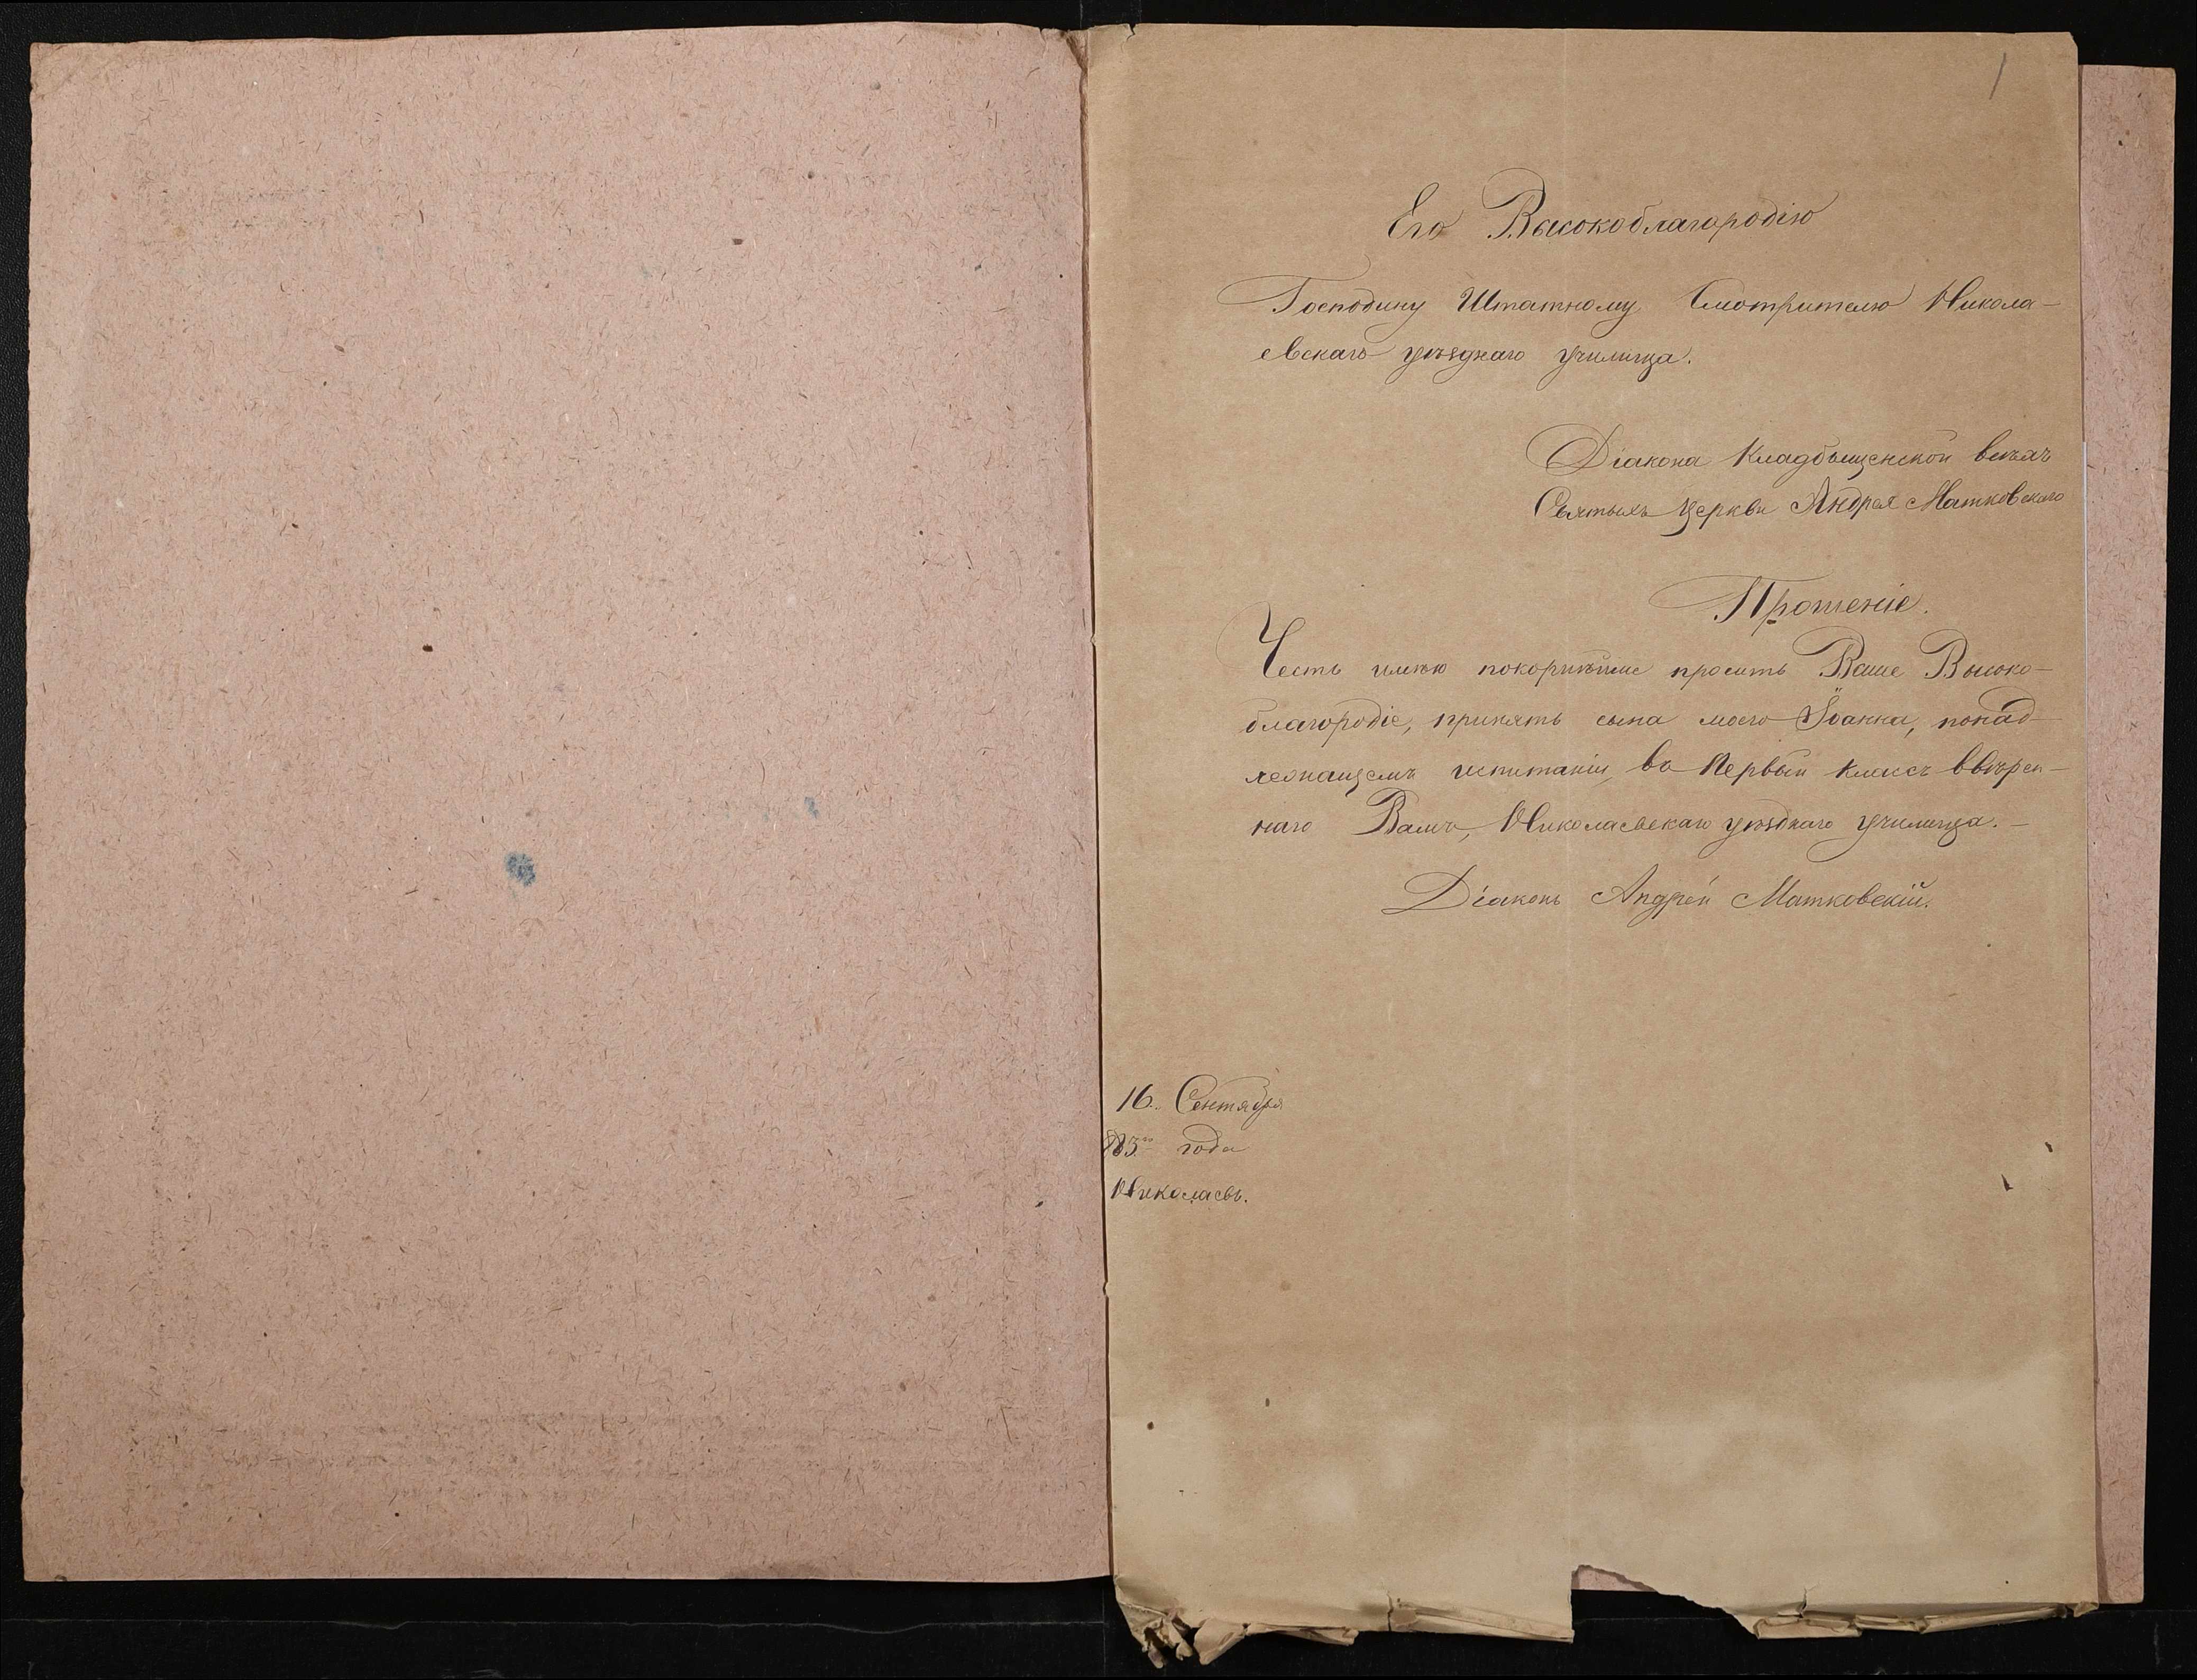 1
Его Высокоблагородію
Господину Штатному Смотрителю Никола-
евскаго уѣзднаго училища.
Діакона Кладбищенской всѣхъ
Святыхъ Церкви Андрея Матковскаго
Прошеніе.
Честь имѣю покорнѣйше просить Ваше Высоко-
благородіе, принять сына моего Іоанна, по над-
лежащемъ испытаніи, во Первый классъ ввѣрен-
наго Вамъ, Николаевскаго уѣзднаго училища.-
Діаконъ Андрей Матковскій.
16. Сентября
года
Николаевъ.